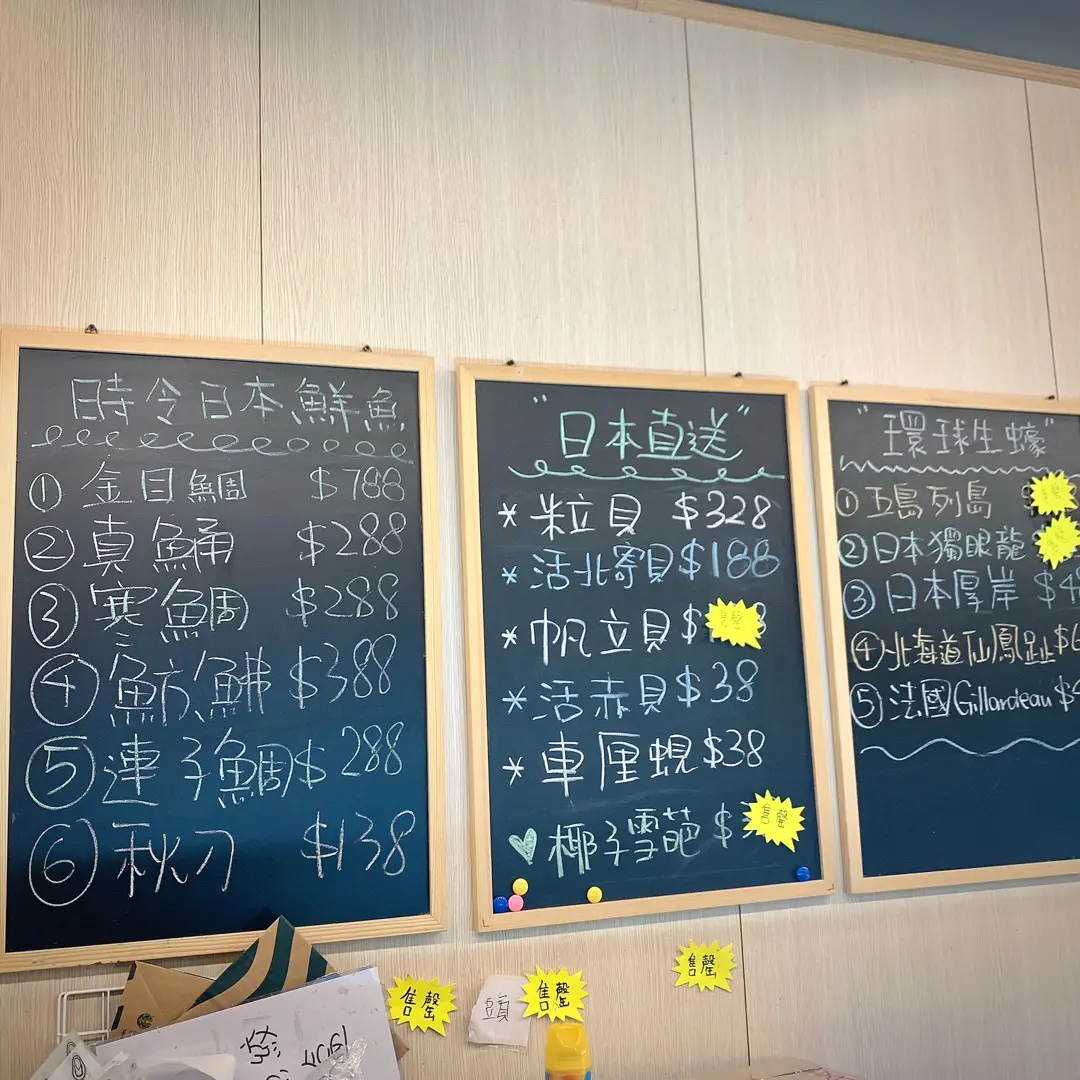 時令日本鮮魚
① 金目鯛 $788
② 真鯒 $288
③ 寒鯛 $288
④ 魴鮄 $388
⑤ 連子鯛 $288
⑥ 秋刀 $138
"日本直送"
* 粒貝 $328
* 活北寄貝 $188
* 帆立貝 $ 售罄
* 活赤貝 $38
* 車厘蜆 $38
♡ 椰子雪葩 $ 售罄
"環球生蠔"
① 五島列島
② 日本獨眼龍
③ 日本厚岸 $4
④ 北海道仙鳳趾 $6
⑤ 法國Gillardeau $4
售罄
售罄
售罄